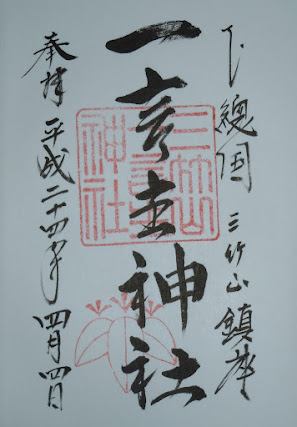 下總国 三竹山 鎮座
一言主神社
奉拝 平成二十四年 四月四日
三竹山
一言主
神社